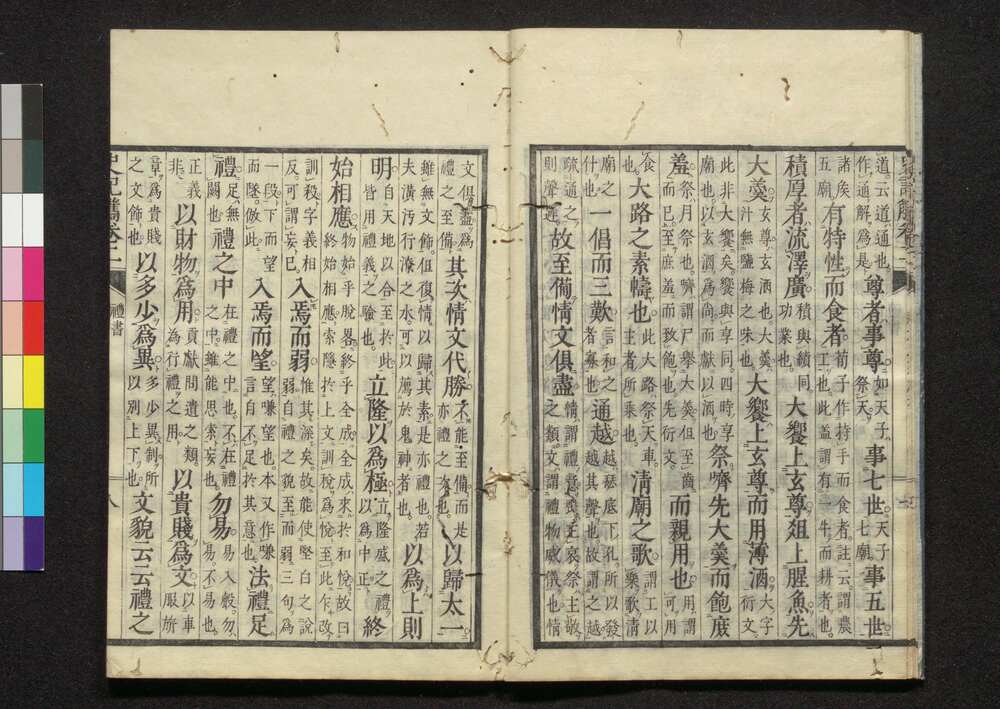 道云道通也作通解為是尊者事尊如天子祭天事七世天子七廟事五世
諸侯五廟有特牲而食者荀子作持手而食者註云謂農工也此蓋謂有一牛而耕者也
積厚者流澤廣積與績同功業也大饗上玄尊俎上腥魚先
大羹玄尊玄酒也大羹汁無鹽梅之味也大饗上玄尊而用薄酒大字衍文
此非大饗矣饗與享同四時享廟也以玄酒為尚而獻以酒也祭嚌先大羹而飽庶
羞祭月祭也嚌謂尸舉大羹但至齒而已至庶羞而致飽也先衍文而親用也用謂可用
食也大路之素幬也此大路祭天車王者所乘也清廟之歌謂工以樂歌清
廟之什也一倡而三歎言和之者寡也通越越瑟底下孔所以發越其聲也故謂之越
疏通之則聲遲故至備情文俱盡情謂禮意喪主哀祭主敬之類文謂禮物威儀也情
文俱盡為禮之至備其次情文代勝不能至備而是亦禮之次也以歸太一
雖無文飾但復情以歸其素是亦禮也若夫潢汙行潦之水可以薦於鬼神者也以為上則
明自天地以合至於此皆用禮義之驗也立隆以為極立隆盛之禮以為中正終
始相應物始乎脫畧終乎全成全成來於和悅故曰終始相應索隱於上文訓稅為悅至此乍改
訓殺字義相反可謂妄已入焉而弱惟其深矣故能使堅白之說弱自禮之貌至而弱三句為
一段下而望而墜倣此入焉而望望嗛望也本又作嗛言自不足於其意也法禮足
禮足無闕也禮之中在禮之中也不在禮之中雖能思索妄也勿易易入聲勿易不易也
正義非以財物為用貢獻問遺之類為行禮之用以貴賤為文以車服旂
章為貴賤之文飾也以多少為異多少異制所以別上下也文貌云云禮之
史記觿卷二 禮書 八